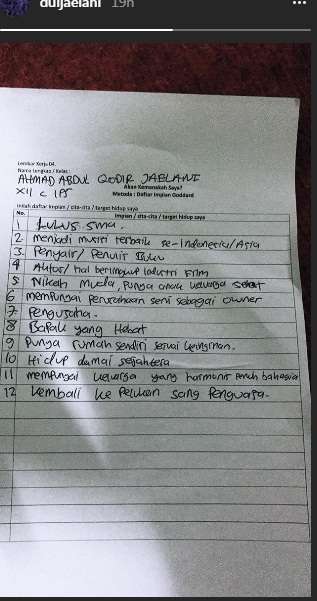 duljaelani 19h
Lembar Kerja 04.
Nama Lengkap / Kelas :
AHMAD ABDUL QODIR JAELANI
XII C IPS
Akan Kemanakah Saya?
Metoda : Daftar Impian Goddard
Inilah daftar impian / cita-cita / target hidup saya
No. Impian / cita-cita / target hidup saya
1 LULUS SMA.
2. menjadi musisi terbaik se-Indonesia/Asia
3. Penyair/ Penulis Buku
4 Autor/ hal berlingkup Industri Film
5 Nikah Muda, punya anak keluarga sehat
6 mempunyai perusahaan seni sebagai owner
7. Pengusaha.
8 Bapak yang Hebat
9 punya rumah sendiri sesuai keinginan.
10 Hidup damai sejahtera
11 mempunyai keluarga yang harmonis penuh bahagia
12 kembali ke pelukan sang penguasa.